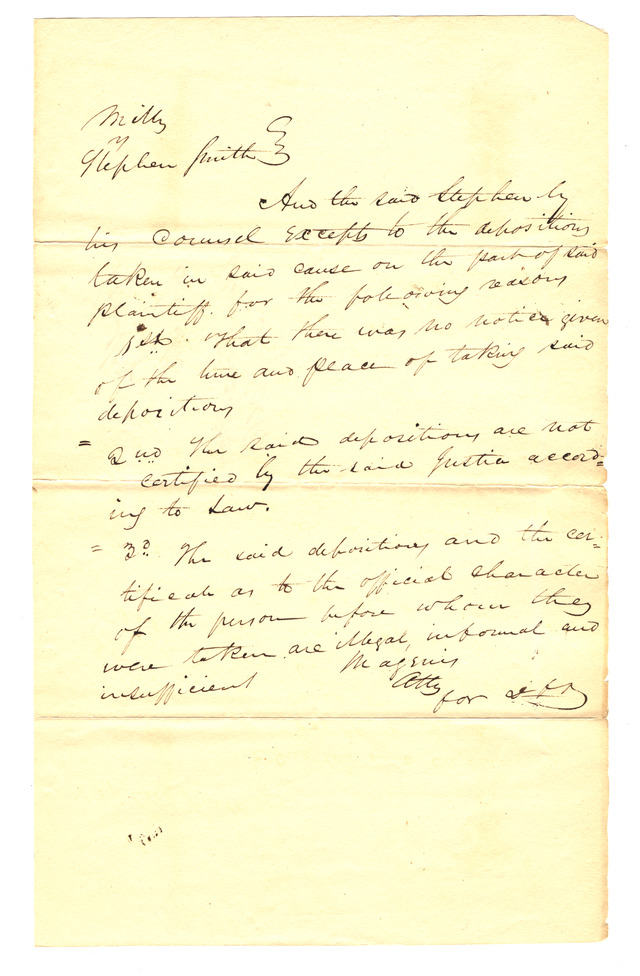 Milly
v
Stephen Smith
And the said Stephen by
his Counsel Excepts to the depositions
taken in said cause on the part of said
plaintiff for the following reasons
1st. That there was no notice given
of the time and place of taking said
depositions
= 2nd The said depositions are not
certified by the said Justice accord=
ing to Law.
= 3d. The said depositions and the cer=
tificate as to the official character
of the person before whom they
were taken are illegal, informal and
insufficient Magenis
Atty
for Deft